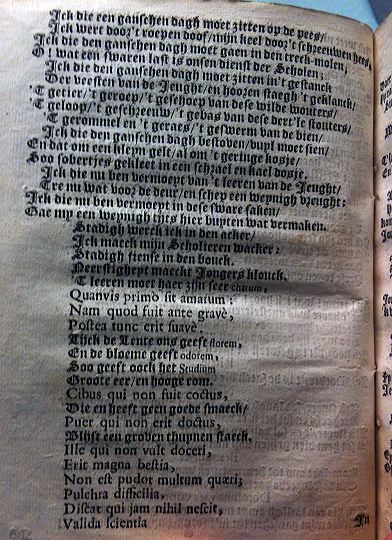 Ick die een ganschen dagh moet zitten op de pees/
Ick wert door't roepen doof/mijn keel door't schreeuwen hees/
Ick die den ganschen dagh moet gaen in den treck-molen;
wat een swaren last is onsen dienst der Scholen;
Ick die den ganschen dagh moet zitten in't gestanck
Der veesten van de Jeught/en hooren staegh 't geklanck/
getier/'t geroep/'t geschoep van dese wilde wouters/
geloop/'t geschreeuw/'t gebas van dese dert'le stouters/
gerommel en 't geraes/'t geswerm van de bien/
Ick die den ganschen dagh bestoven/vuyl moet sien/
En dat om een kleyn gelt/al om 't geringe kosje/
Soo sobertjes gekleet in een schrael en kael dosje.
Ick die nu ben vermoept van 't leeren van de Jeught/
nu wat voor de deur/en schep een weynigh vreught:
Ick die nu ben vermoept in dese sware saken/
Gae my een weynigh this hier buyten wat vermaken.
Stadigh werck ick in den acker/
Ick maeck mijn Scholieren wacker:
Stadigh siense in den bouck.
Neerstigheyt maeckt Jongers klouck.
leeren moet haer zijn seer charum,
Quamvis primò sit amarum:
Nam quod fuit ante gravè,
Postea tunc erit suavè.
Ghelijck de Lente ons geeft florem,
En de bloeme geeft odorem,
Soo geeft oock het Studium
Groote eer/en hooge rom.
Cibus qui non fuit coctus,
Die en heeft geen goede smaeck/
Puer qui non erit doctus,
Blijft een groven thuynen staeck.
Ille qui non vult doceri,
Erit magna bestia,
Non est pudor multum quæri;
Pulchra difficilia,
Discat qui jam nihil nescit,
Valida scientia